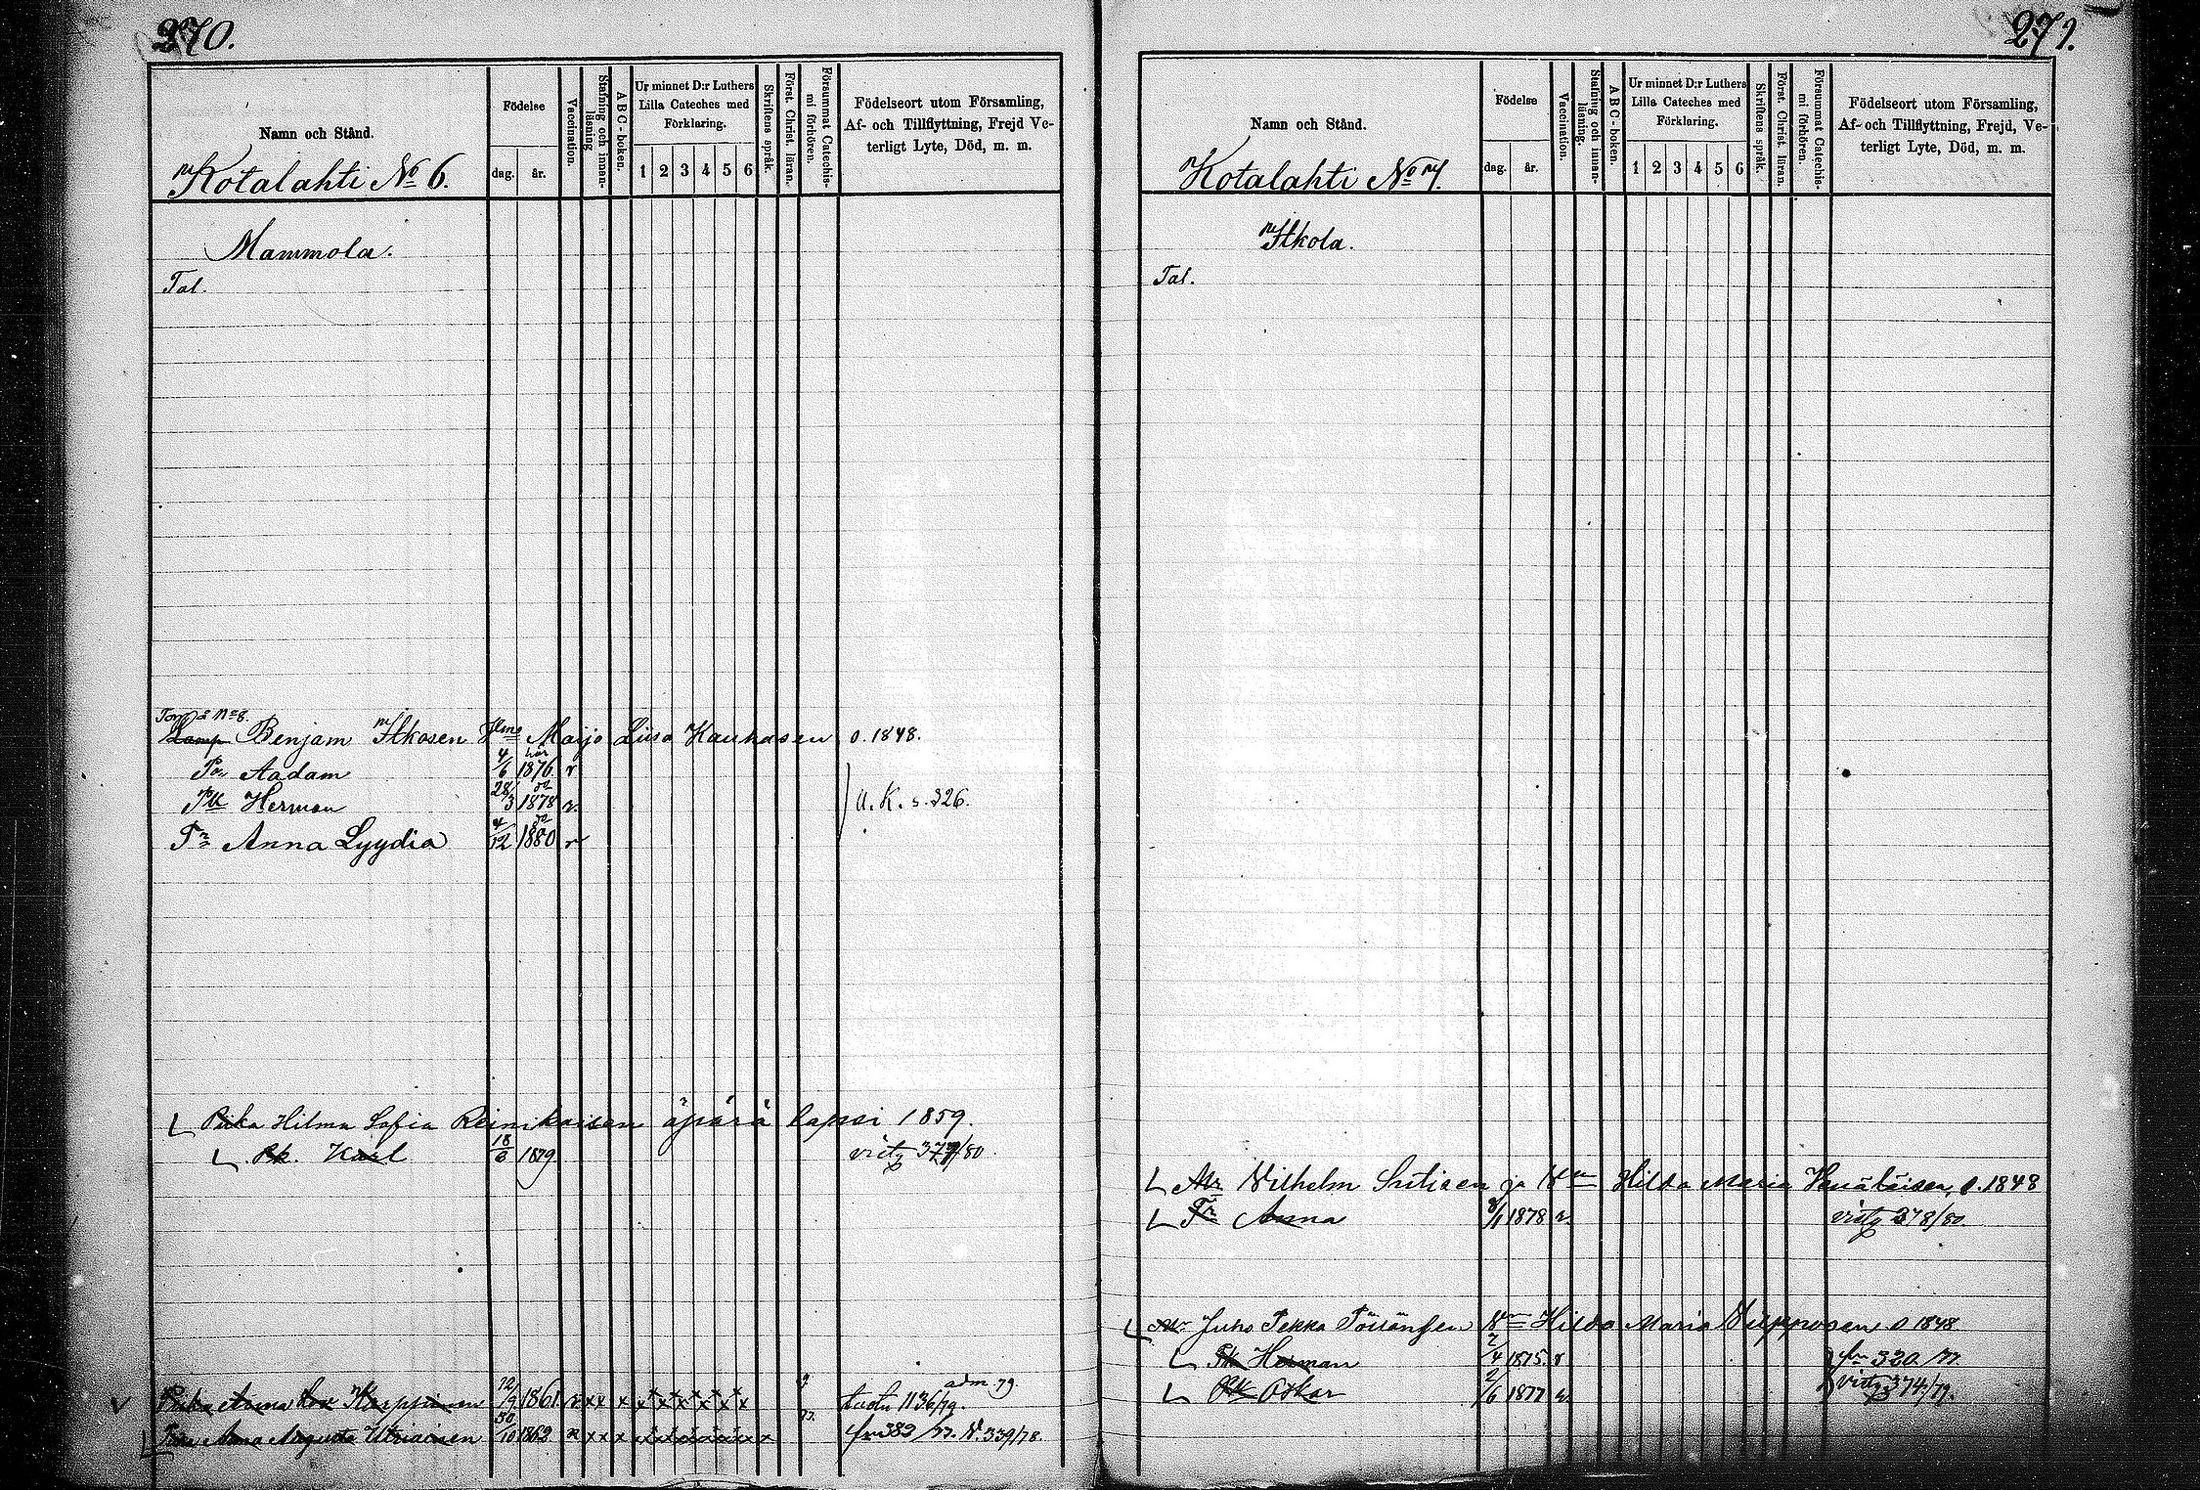 270.
Namn och Stånd.
Födelse
dag.
år.
Vaccination.
Stafning och innan-läsning
A B C-boken.
Ur minnet D:r Luthers
Lilla Cateches med
Förklaring.
1 2 3 4 5 6
Skriftens språk.
Först. Christ. läran.
Försummat Catechis-mi förhören.
Födelseort utom Församling,
Af- och Tillflyttning, Frejd Ve-
terligt Lyte, Död, m. m.
Kotalahti No 6.
Mammola.
Tal.
Benjam Itkosen Maija Liisa Kauhasen o. 1848.
Aadam 4/6 1876 v
Herman 28/3 1878 v.
Anna Lyydia 4/12 1880 v
U. K. s. 326.
Piika Hilma Sofia Reinikaisen äpärä lapsi 1859.
Pk. Karl 18/6 1879
Karppinen 12/9 1861 v x x x x x x x x x adm. 79
Anna Augusta 30/10 1862 v x x x x x x x x x x
271.
Namn och Stånd.
Födelse
dag.
år.
Vaccination.
Stafning och innan-läsning.
A B C-boken.
Ur minnet D:r Luthers
Lilla Cateches med
Förklaring.
1 2 3 4 5 6
Skriftens språk.
Först. Christ. läran.
Försummat Catechis-mi förhören.
Födelseort utom Församling,
Af- och Tillflyttning, Frejd, Ve-
terligt Lyte, Död, m. m.
Kotalahti No 7.
Itkola.
Tal.
Vilhelm ja Hilda Maria o. 1848
Anna 1878 v. 378/80
Juho Pekka Hilda Maria o 1848
Herman 2/4 1875. v 320/77
Oskar 2/6 1877 v 374/79.